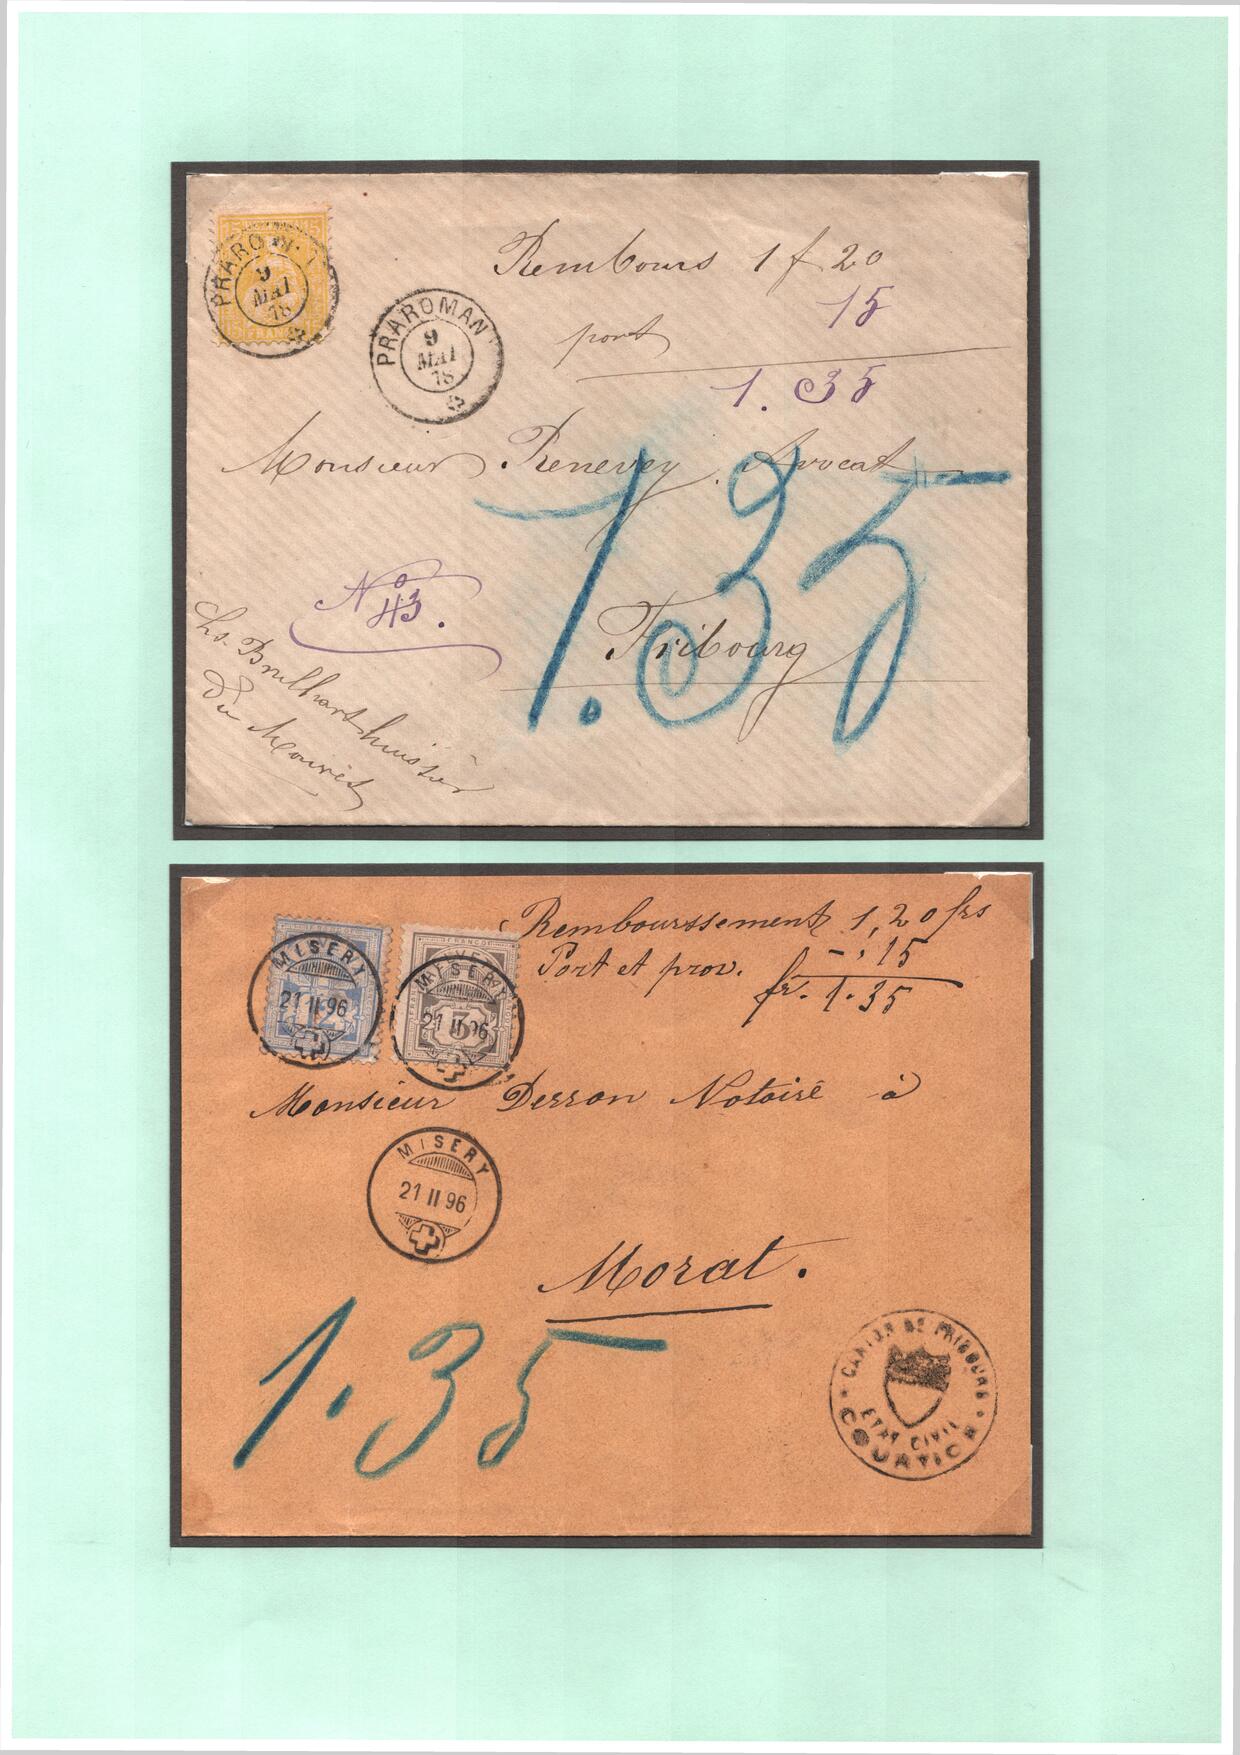 15 15
FRANCO
15 15
PRAROMAN
9
MAI
78
PRAROMAN
9
MAI
78
Rembours 1 f 20
port 15
1.35
Monsieur Renevey, Avocat
1.35
Fribourg
No 43.
Chs. Brulhart huissier
du Mouret
FRANCO
12
MISERY
21 II 96
5
MISERY
21 II 96
Rembourssement 1,20 frs
Port et prov. -.15
fr. 1.35
Monsieur Derron Notaire à
MISERY
21 II 96
Morat.
1.35
CANTON DE FRIBOURG
ETAT CIVIL